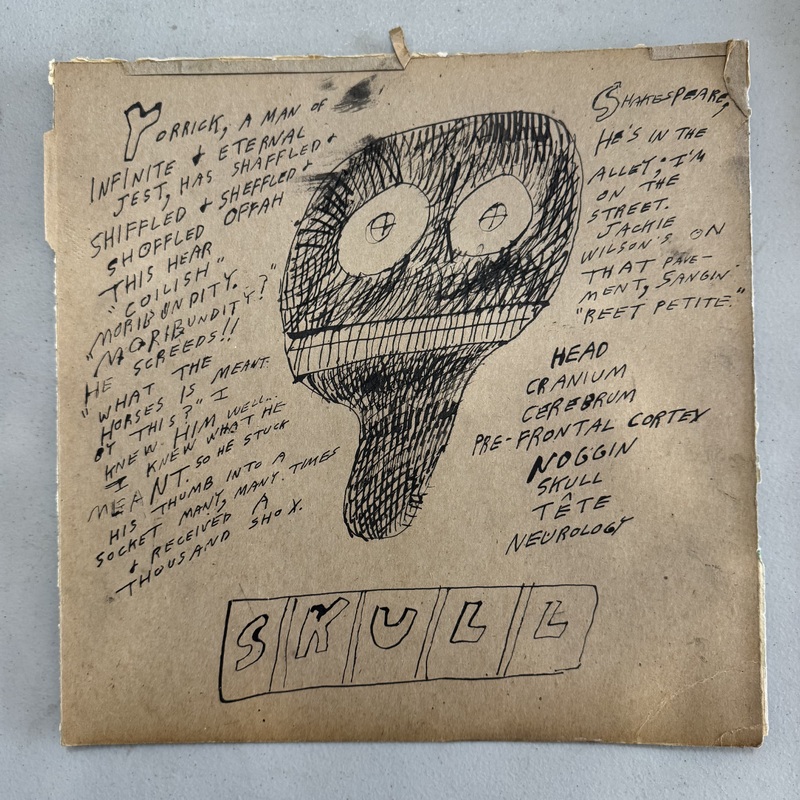 YORRICK, A MAN OF
INFINITE + ETERNAL
JEST, HAS SHAFFLED +
SHIFFLED + SHEFFLED +
SHOFFLED OFFAH
THIS HEAR
"COILISH"
"MORIBUNDITY.
MORIBUNDITY?"
HE SCREEDS!!
"WHAT THE
HORSES IS MEANT
BY THIS?" I
KNEW HIM WELL..
I KNEW WHAT HE
MEANT. SO HE STUCK
HIS THUMB INTO A
SOCKET MANY, MANY TIMES
+ RECEIVED A
THOUSAND SHOX.
SHAKESPEARE,
HE'S IN THE
ALLEY; I'M
ON THE
STREET.
JACKIE
WILSON'S ON
THAT PAVE-
MENT, SANGIN'
"REET PETITE."
HEAD
CRANIUM
CEREBRUM
PRE-FRONTAL CORTEX
NOGGIN
SKULL
TÊTE
NEUROLOGY
SKULL